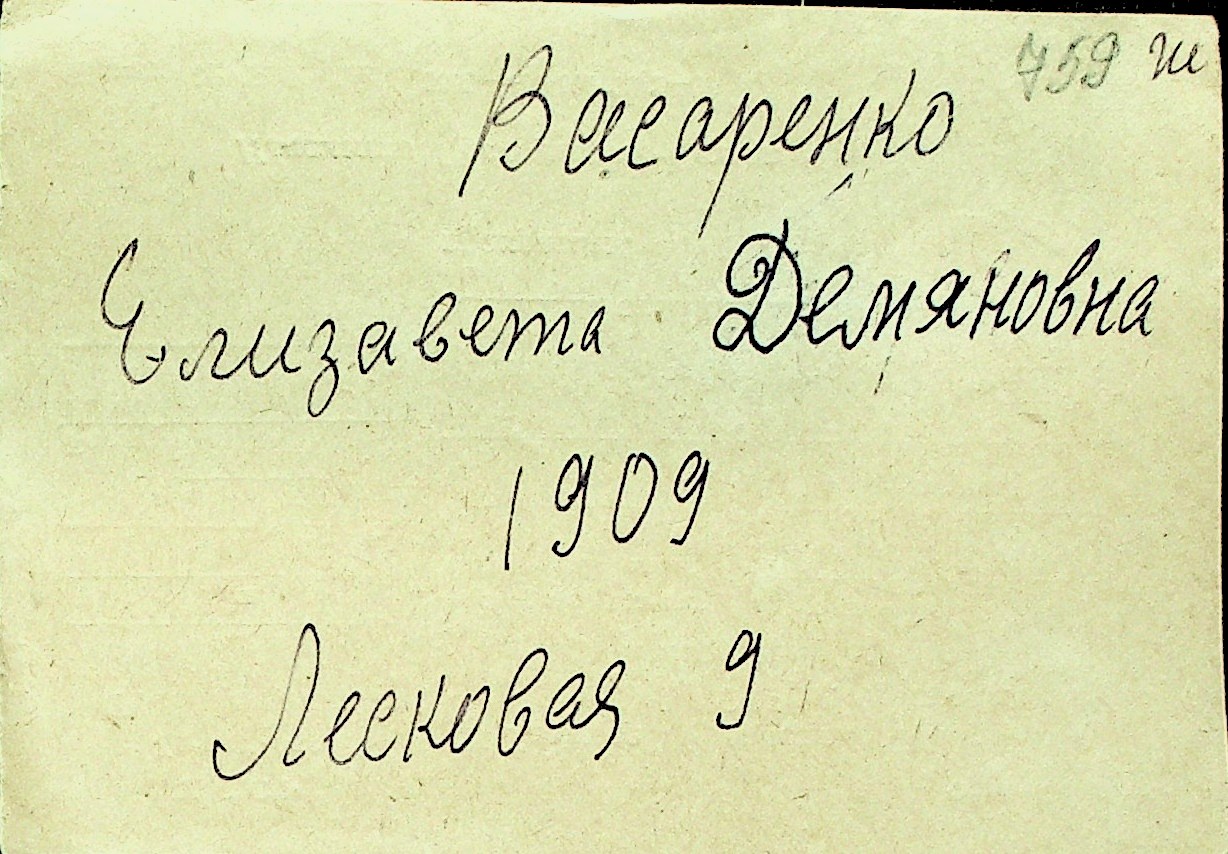 759 Ж
Васаренко
Елизавета Демяновна
1909
Лесковая 9